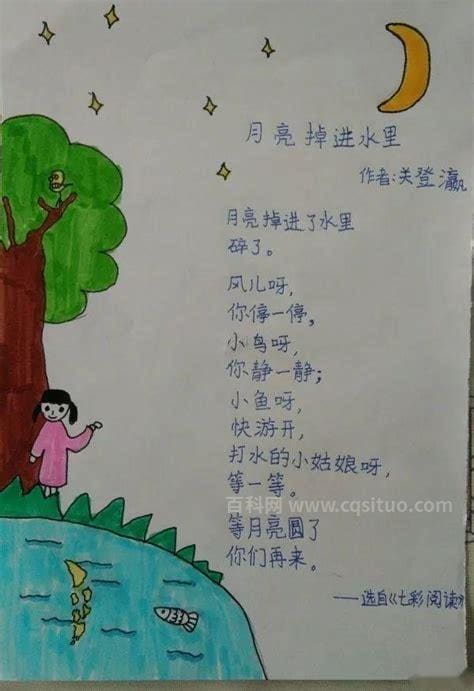 月亮掉进水里
作者:关登瀛
月亮掉进了水里
碎了。
风儿呀，
你停一停，
小鸟呀，
你静一静；
小鱼呀，
快游开，
打水的小姑娘呀，
等一等。
百科网 www.cqsituo.com
等月亮圆了
你们再来。
——选自《七彩阅读》